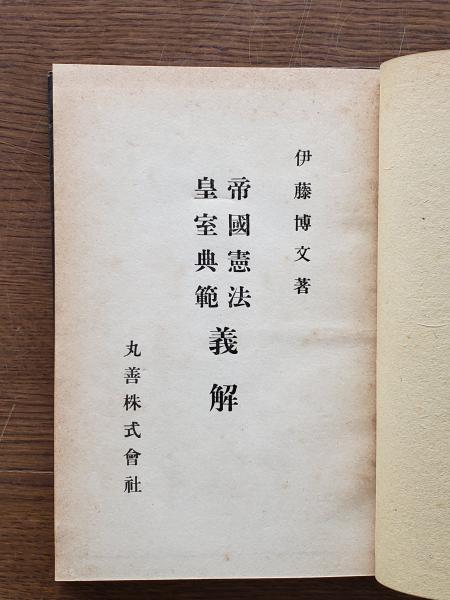 伊藤博文著
帝國憲法
皇室典範
義解
丸善株式會社